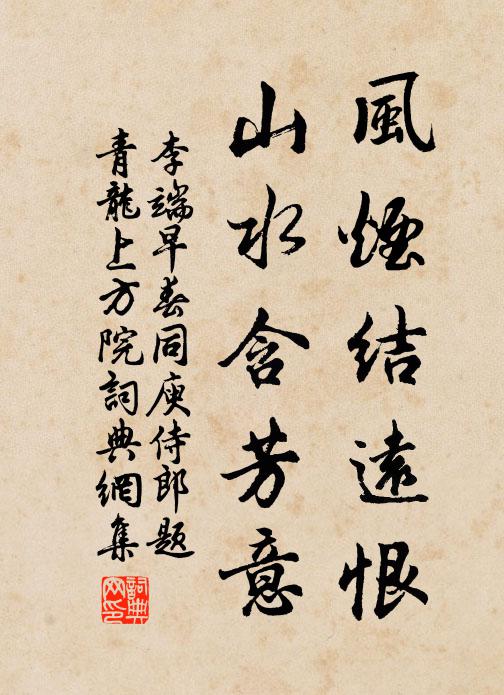 風煙結遠恨
山水含芳意
李端早春同庾侍郎題
青龍上方院詞典網集
詞典網印